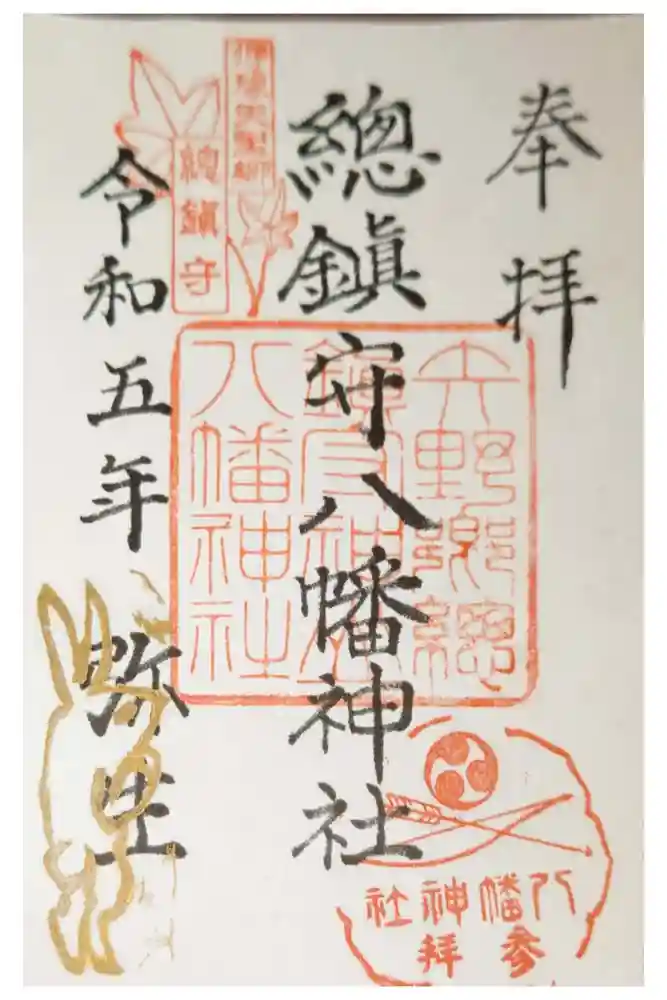 奉拝
總鎮守八幡神社
令和五年 弥生
總鎮守
大野郷總
八幡神社
八幡神社
参拝